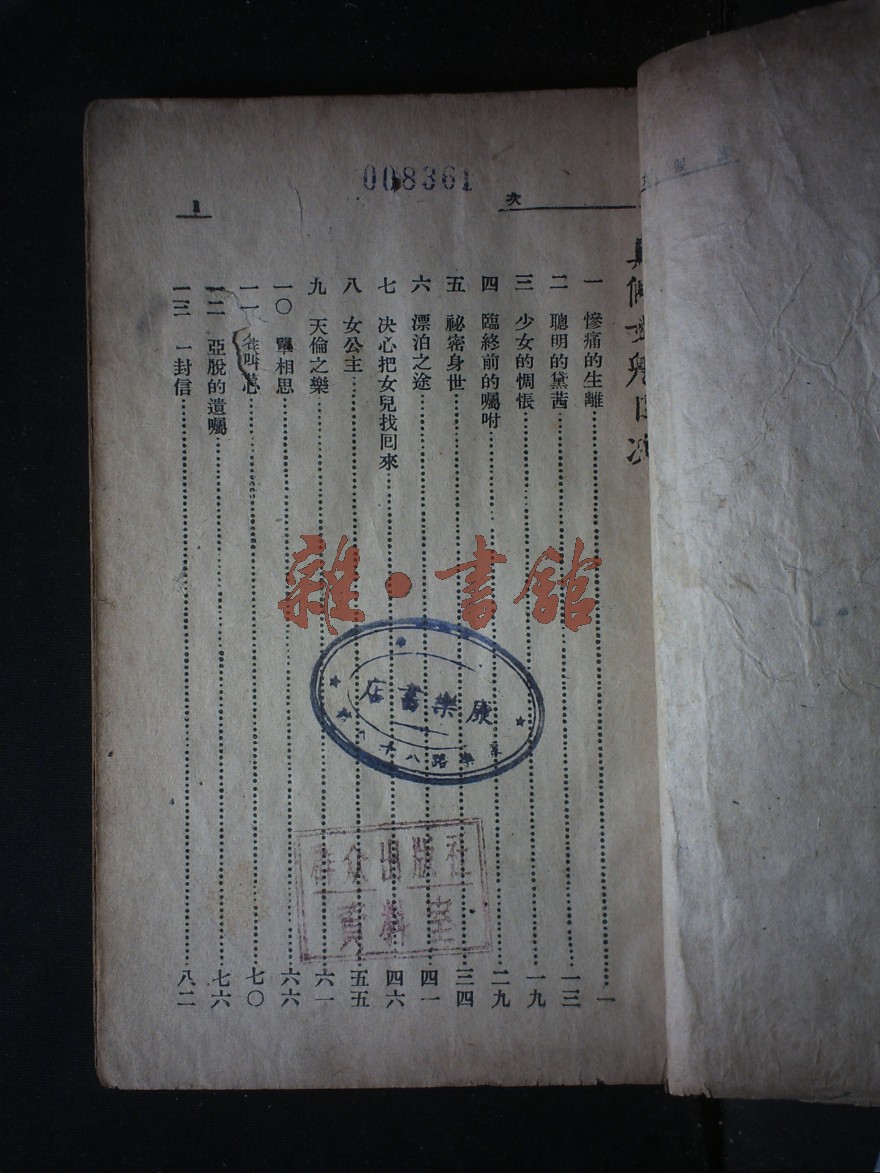 008361
次
1
目次
一 慘痛的生離 一
二 聰明的黛茜 一三
三 少女的惆悵 一九
四 臨終前的囑咐 二九
五 祕密身世 三四
六 漂泊之途 四一
七 决心把女兒找囘來 四六
八 女公主 五五
九 天倫之樂 六一
一〇 單相思 六六
一一 七〇
一二 亞脫的遺囑 七六
一三 一封信 八二
雜·書館
康樂書店
路八十
群众出版社
資料室